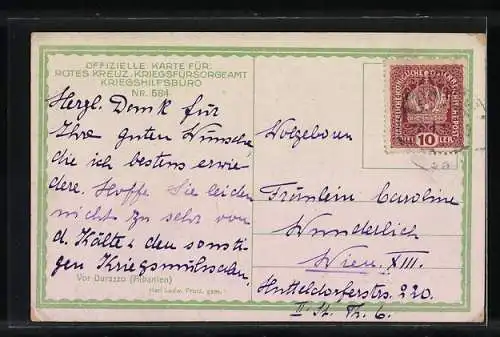 OFFIZIELLE KARTE FÜR:
ROTES KREUZ, KRIEGSFÜRSORGEAMT
KRIEGSHILFSBÜRO
NR. 584
Herzl. Dank für
Ihre guten Wünsche,
die ich bestens erwie-
dere. Hoffe Sie leiden
nicht zu sehr von
d. Kälte u. den sonsti-
gen Kriegsmühsalen.
Vor Durazzo (Albanien)
Karl Ludw. Prinz, gem.
KAISERLICHE KÖNIGLICHE ÖSTERREICHISCHE POST
10 HELLER
Wohlgeboren
Fräulein Caroline
Wunderlich
Wien XIII.
Hütteldorferstrs. 220.
II. St. Th. 6.